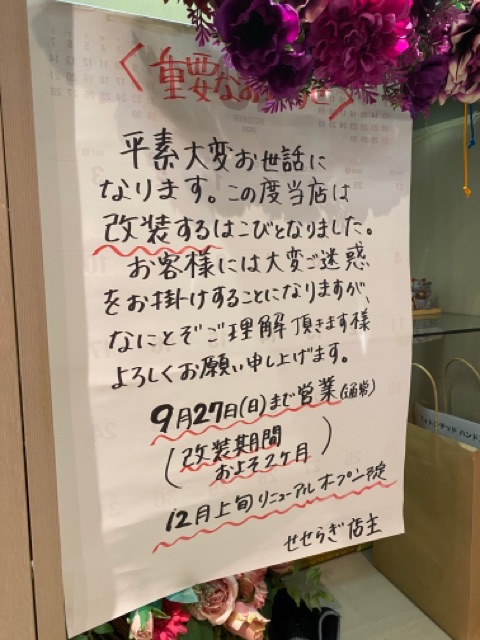 <重要なお知らせ>
平素大変お世話に
なります。この度当店は
改装するはこびとなりました。
お客様には大変ご迷惑
をお掛けすることになりますが、
なにとぞご理解頂きます様
よろしくお願い申し上げます。
9月27日(日)まで営業(通常)
(改装期間
およそ2ケ月)
12月上旬リニューアルオープン予定
せせらぎ店主